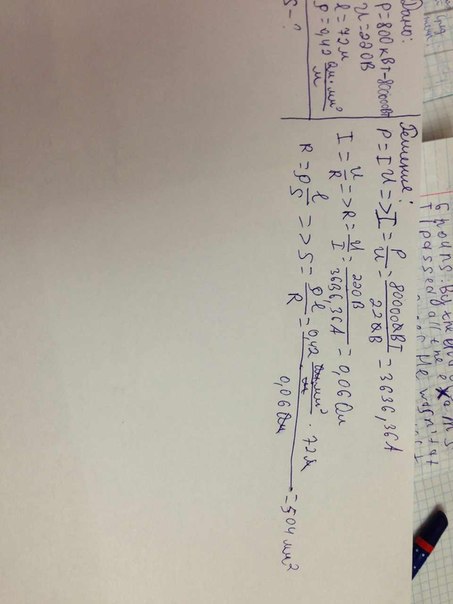 Дано:
P=800кВт=800000Вт
U=220В
l=72м
ρ=0,42 Ом·мм²/м
S-?
Решение:
P=IU=>I=P/U=800000Вт/220В=3636,36А
I=U/R=>R=U/I=220В/3636,36А=0,06Ом
R=ρ l/S=>S=ρl/R=0,42 Ом·мм²/м·72м/0,06Ом=504мм²
6 hours. By the
I passed all the exams